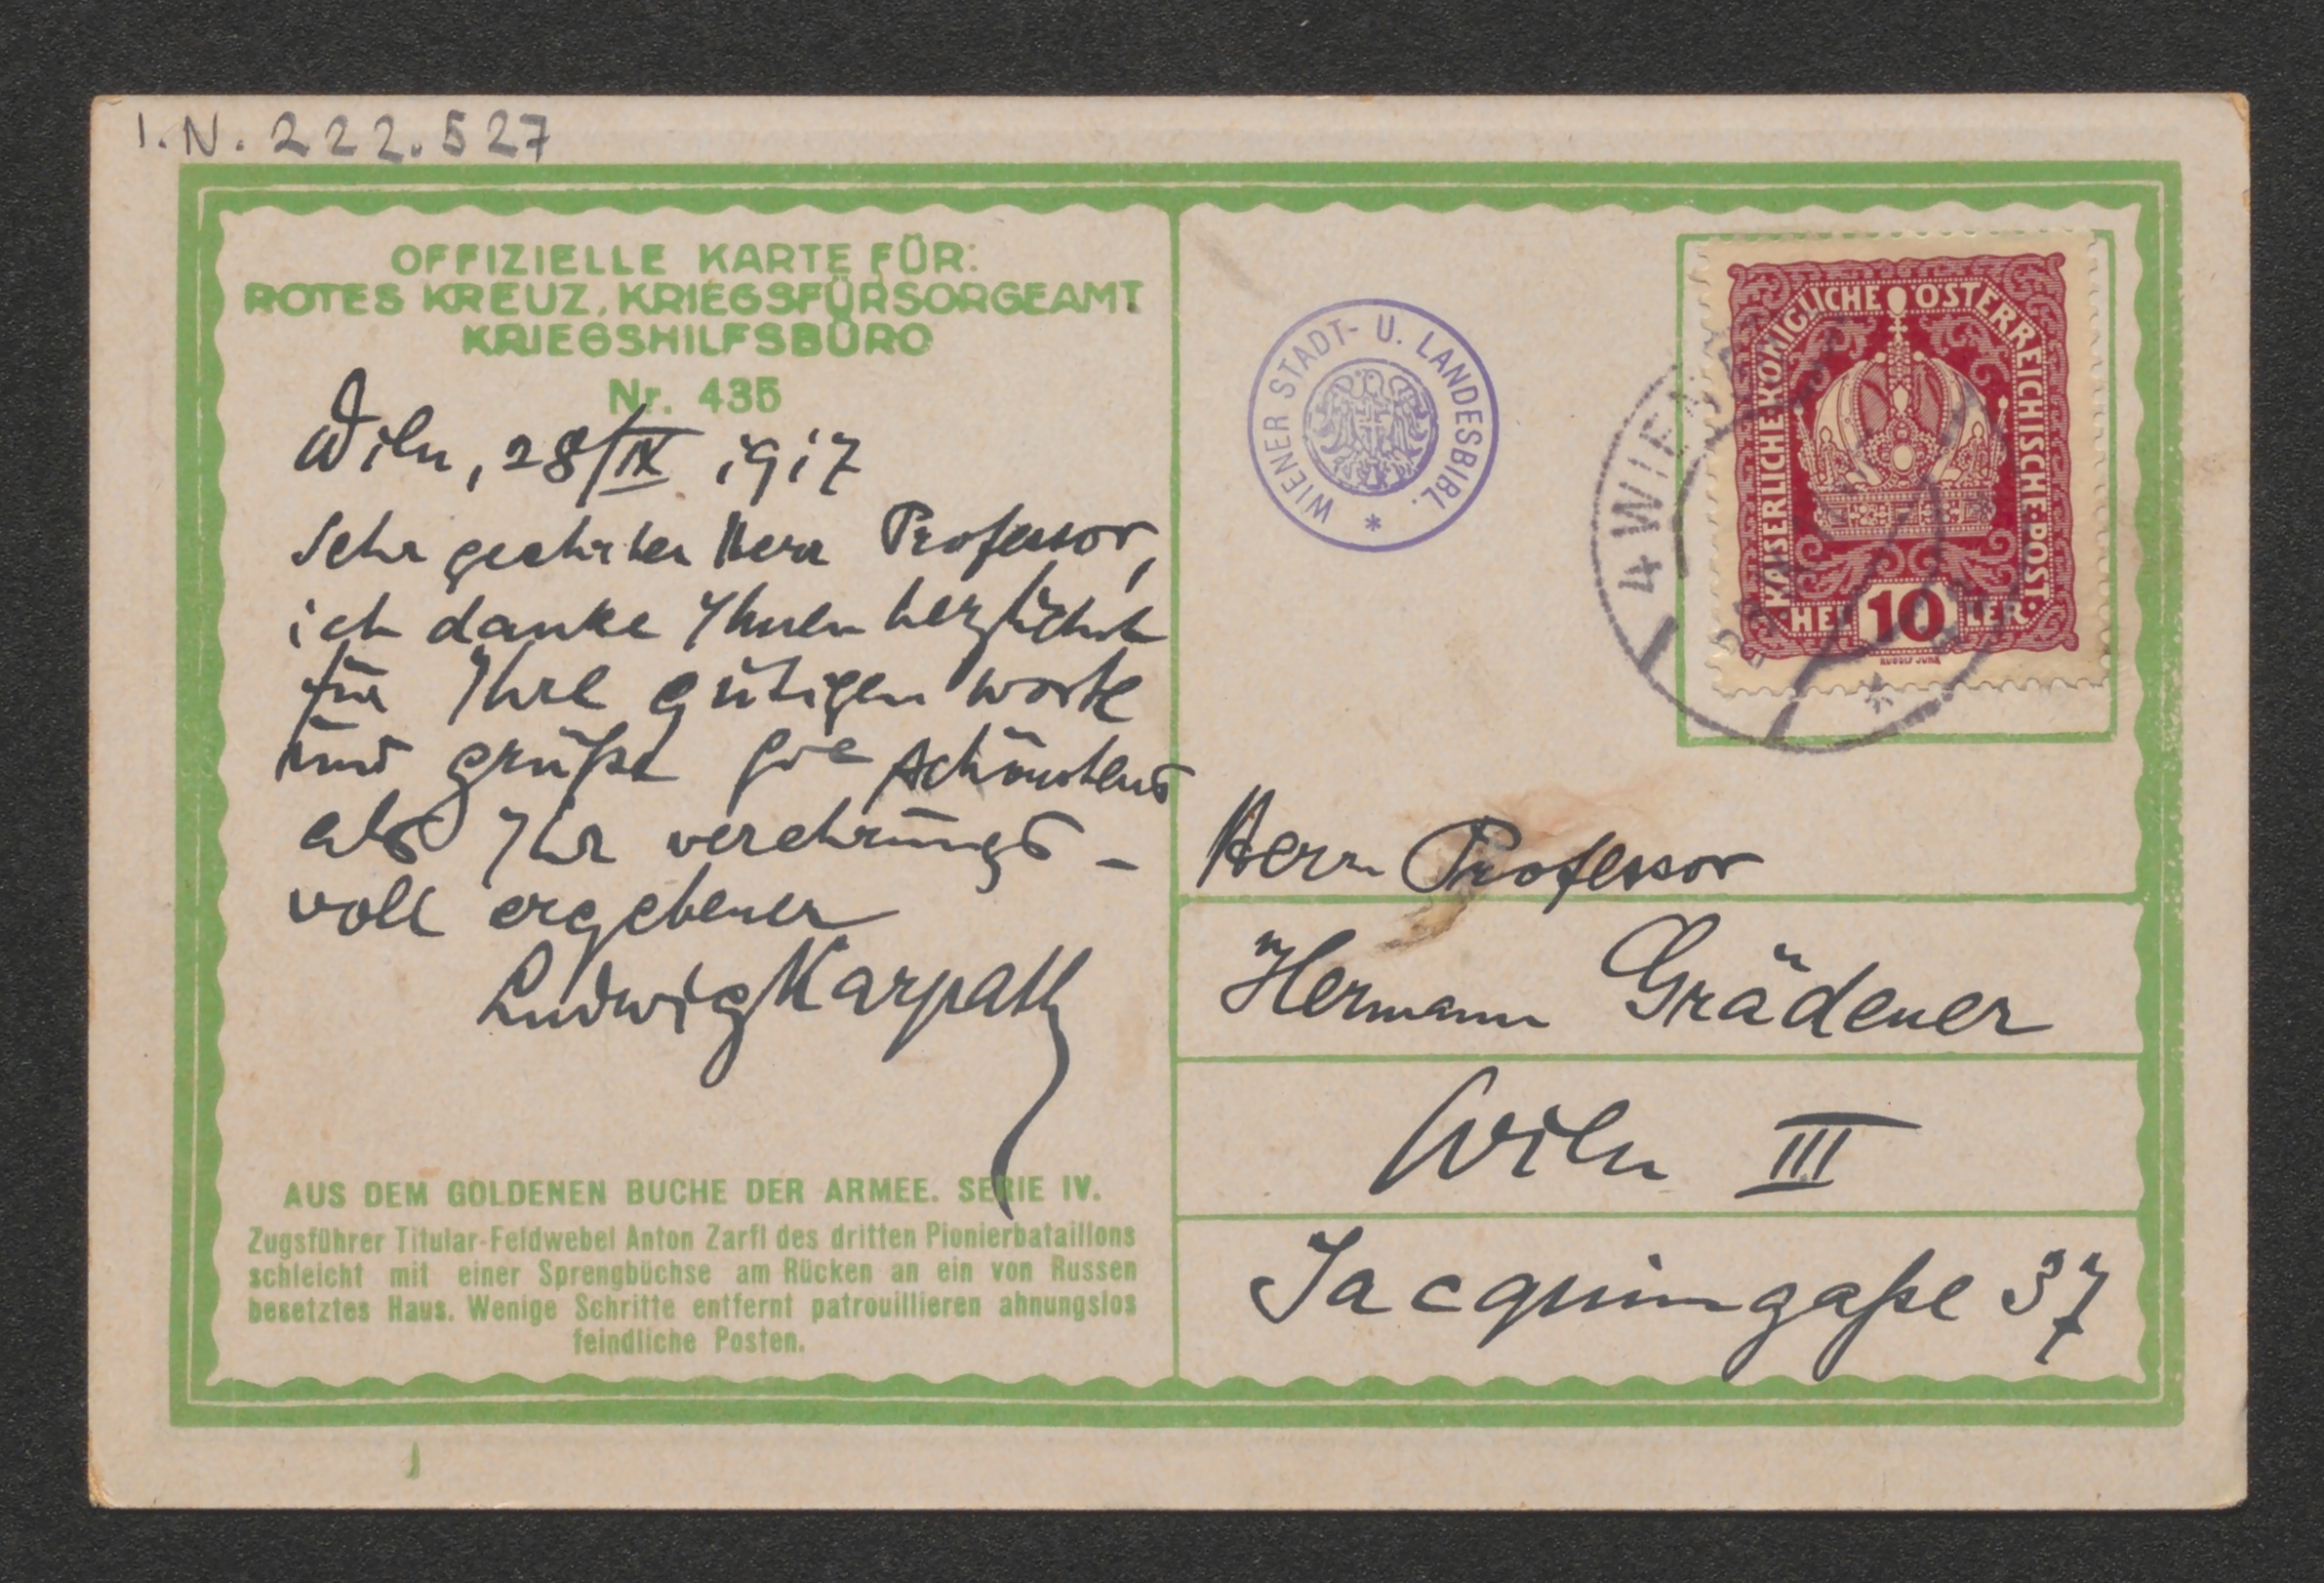 I.N. 222.527
OFFIZIELLE KARTE FÜR:
ROTES KREUZ, KRIEGSFÜRSORGEAMT
KRIEGSHILFSBÜRO
Nr. 435
Wien, 28/IX 1917
Sehr geehrter Herr Professor,
ich danke Ihnen herzlichst
für Ihre gütigen Worte
und grüße Sie schönstens
als Ihr verehrungs-
voll ergebener
Ludwig Karpath
AUS DEM GOLDENEN BUCHE DER ARMEE. SERIE IV.
Zugsführer Titular-Feldwebel Anton Zarfl des dritten Pionierbataillons
schleicht mit einer Sprengbüchse am Rücken an ein von Russen
besetztes Haus. Wenige Schritte entfernt patrouillieren ahnungslos
feindliche Posten.
WIENER STADT- U. LANDESBIBL. *
KAISERLICHE KÖNIGLICHE ÖSTERREICHISCHE POST
HELLER
10
RUDOLF JUNK
4 WIEN
Herrn Professor
Hermann Grädener
Wien III
Jacquingaße 37